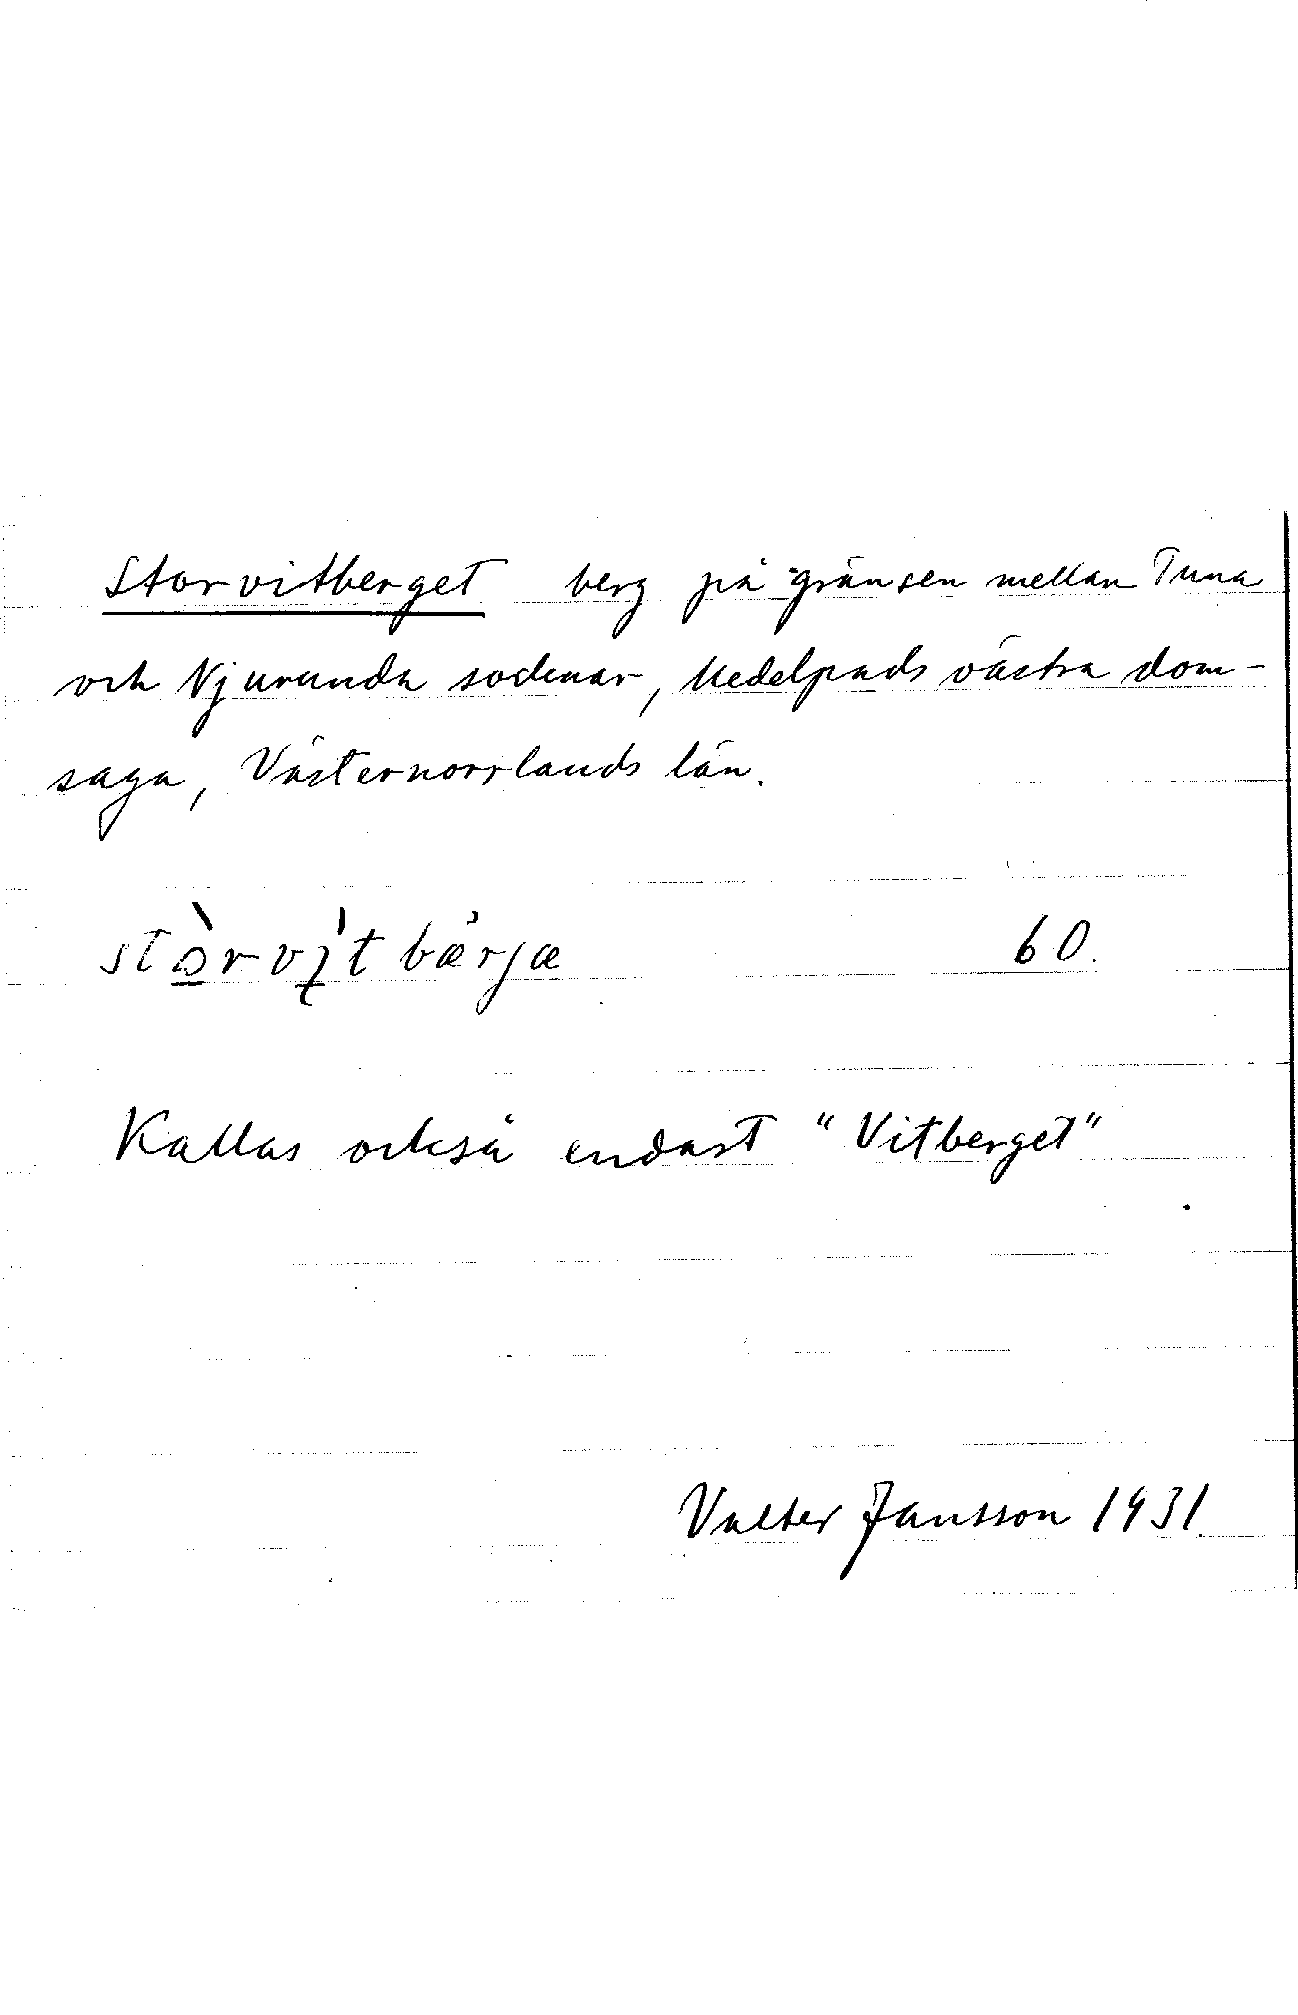 Storvitberget berg på gränsen mellan Tuna
och Njurunda socknar, Medelpads västra dom-
saga, Västernorrlands län.
stòrvìtbærjæ 60.
Kallas också endast "Vitberget"
Valter Jansson 1931